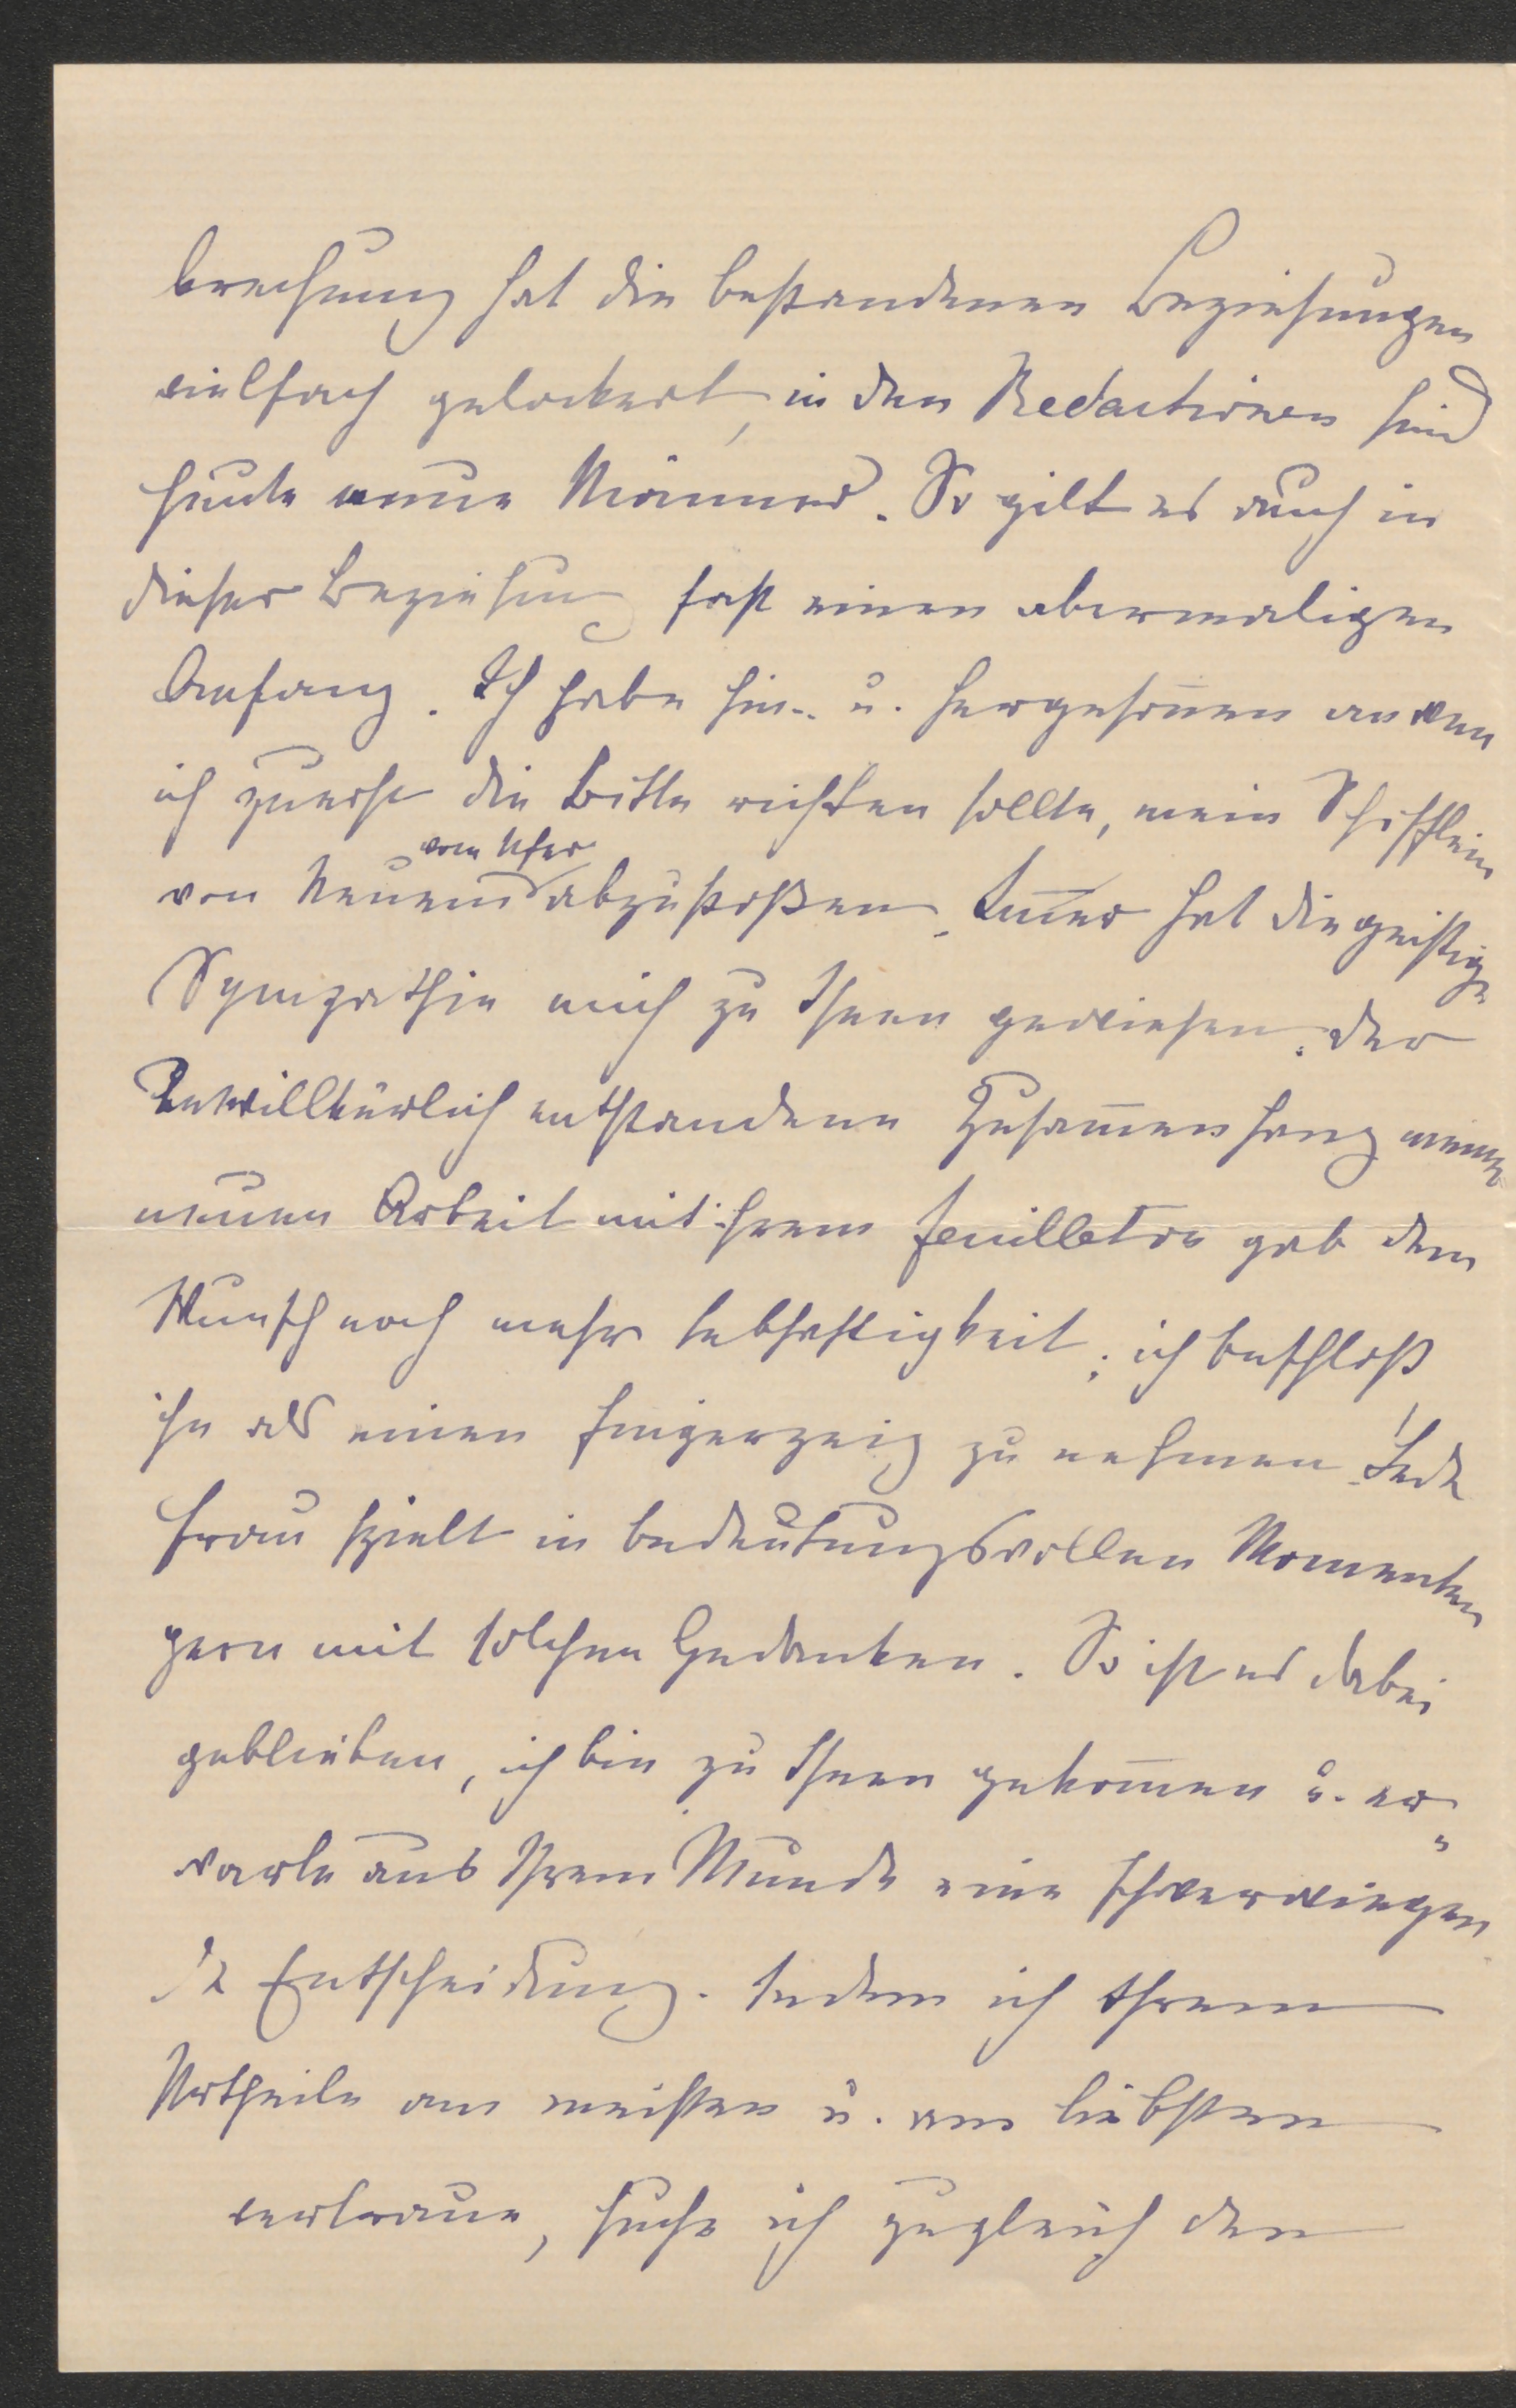 brechung hat die bestandenen Beziehungen
vielfach gelockert, in den Redactionen sind
heute neue Männer. So gilt es auch in
dieser Beziehung fast einen abermaligen
Anfang. Ich habe hin- u. hergesonnen an wen
ich zuerst die Bitte richten sollte, mein Schifflein
vom Ufer
von Neuem abzustoßen. Im̄er hat die geistige
Sympathie mich zu Ihnen gewiesen. der
unwillkürlich entstandene Zusam̄enhang meiner
neuen Arbeit mit Ihrem Feuilleton gab dem
Wunsch noch mehr Lebhaftigkeit; ich beschloß
ihn als einen Fingerzeig zu nehmen. Jede
Frau spielt in bedeutungsvollen Momenten
gern mit solchen Gedanken. So ist es dabei
geblieben, ich bin zu Ihnen gekom̄en u. er-
warte aus Ihrem Munde eine schwerwiegen
de Entscheidung. Indem ich Ihrem
Urtheile am meisten u. am liebsten
vertraue, suche ich zugleich den